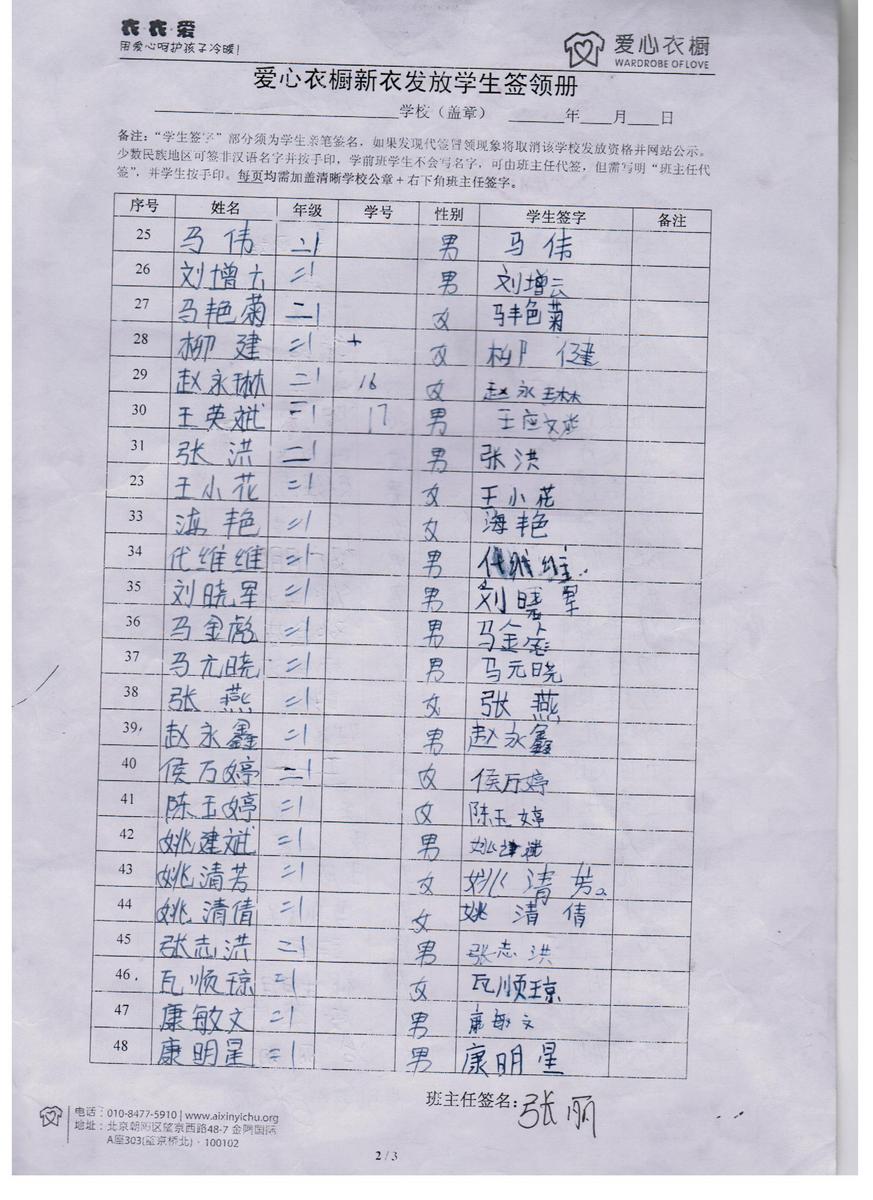 衣·衣·爱
用爱心呵护孩子冷暖!
爱心衣橱
WARDROBE OF LOVE
爱心衣橱新衣发放学生签领册
学校（盖章） 年 月 日
备注：“学生签字”部分须为学生亲笔签名，如果发现代签冒领现象将取消该学校发放资格并网站公示。
少数民族地区可签非汉语名字并按手印，学前班学生不会写名字，可由班主任代签，但需写明“班主任代
签”，并学生按手印。每页均需加盖清晰学校公章+右下角班主任签字。
序号 姓名 年级 学号 性别 学生签字 备注
25 马伟 二1 男 马伟
26 刘增云 二1 男 刘增云
27 马艳菊 二1 女 马艳菊
28 柳建 二1 女 柳健
29 赵永琳 二1 16 女 赵永琳
30 王英斌 二1 17 男 王应斌
31 张洪 二1 男 张洪
23 王小花 二1 女 王小花
33 海艳 二1 女 海艳
34 代维维 二1 男 代维维
35 刘晓军 二1 男 刘晓军
36 马金彪 二1 男 马金
37 马元晓 二1 男 马元晓
38 张燕 二1 女 张燕
39 赵永鑫 二1 男 赵永鑫
40 侯万婷 二1 女 侯万婷
41 陈玉婷 二1 女 陈玉婷
42 姚建斌 二1 男 姚建
43 姚清芳 二1 女 姚清芳
44 姚清倩 二1 女 姚清倩
45 张志洪 二1 男 张志洪
46 瓦顺琼 二1 女 瓦顺琼
47 康敏文 二1 男 康敏文
48 康明星 二1 男 康明星
班主任签名：张丽
电话：010-8477-5910 | www.aixinyichu.org
地址：北京朝阳区望京西路48-7 金隅国际
A座303(望京桥北)·100102
2 / 3